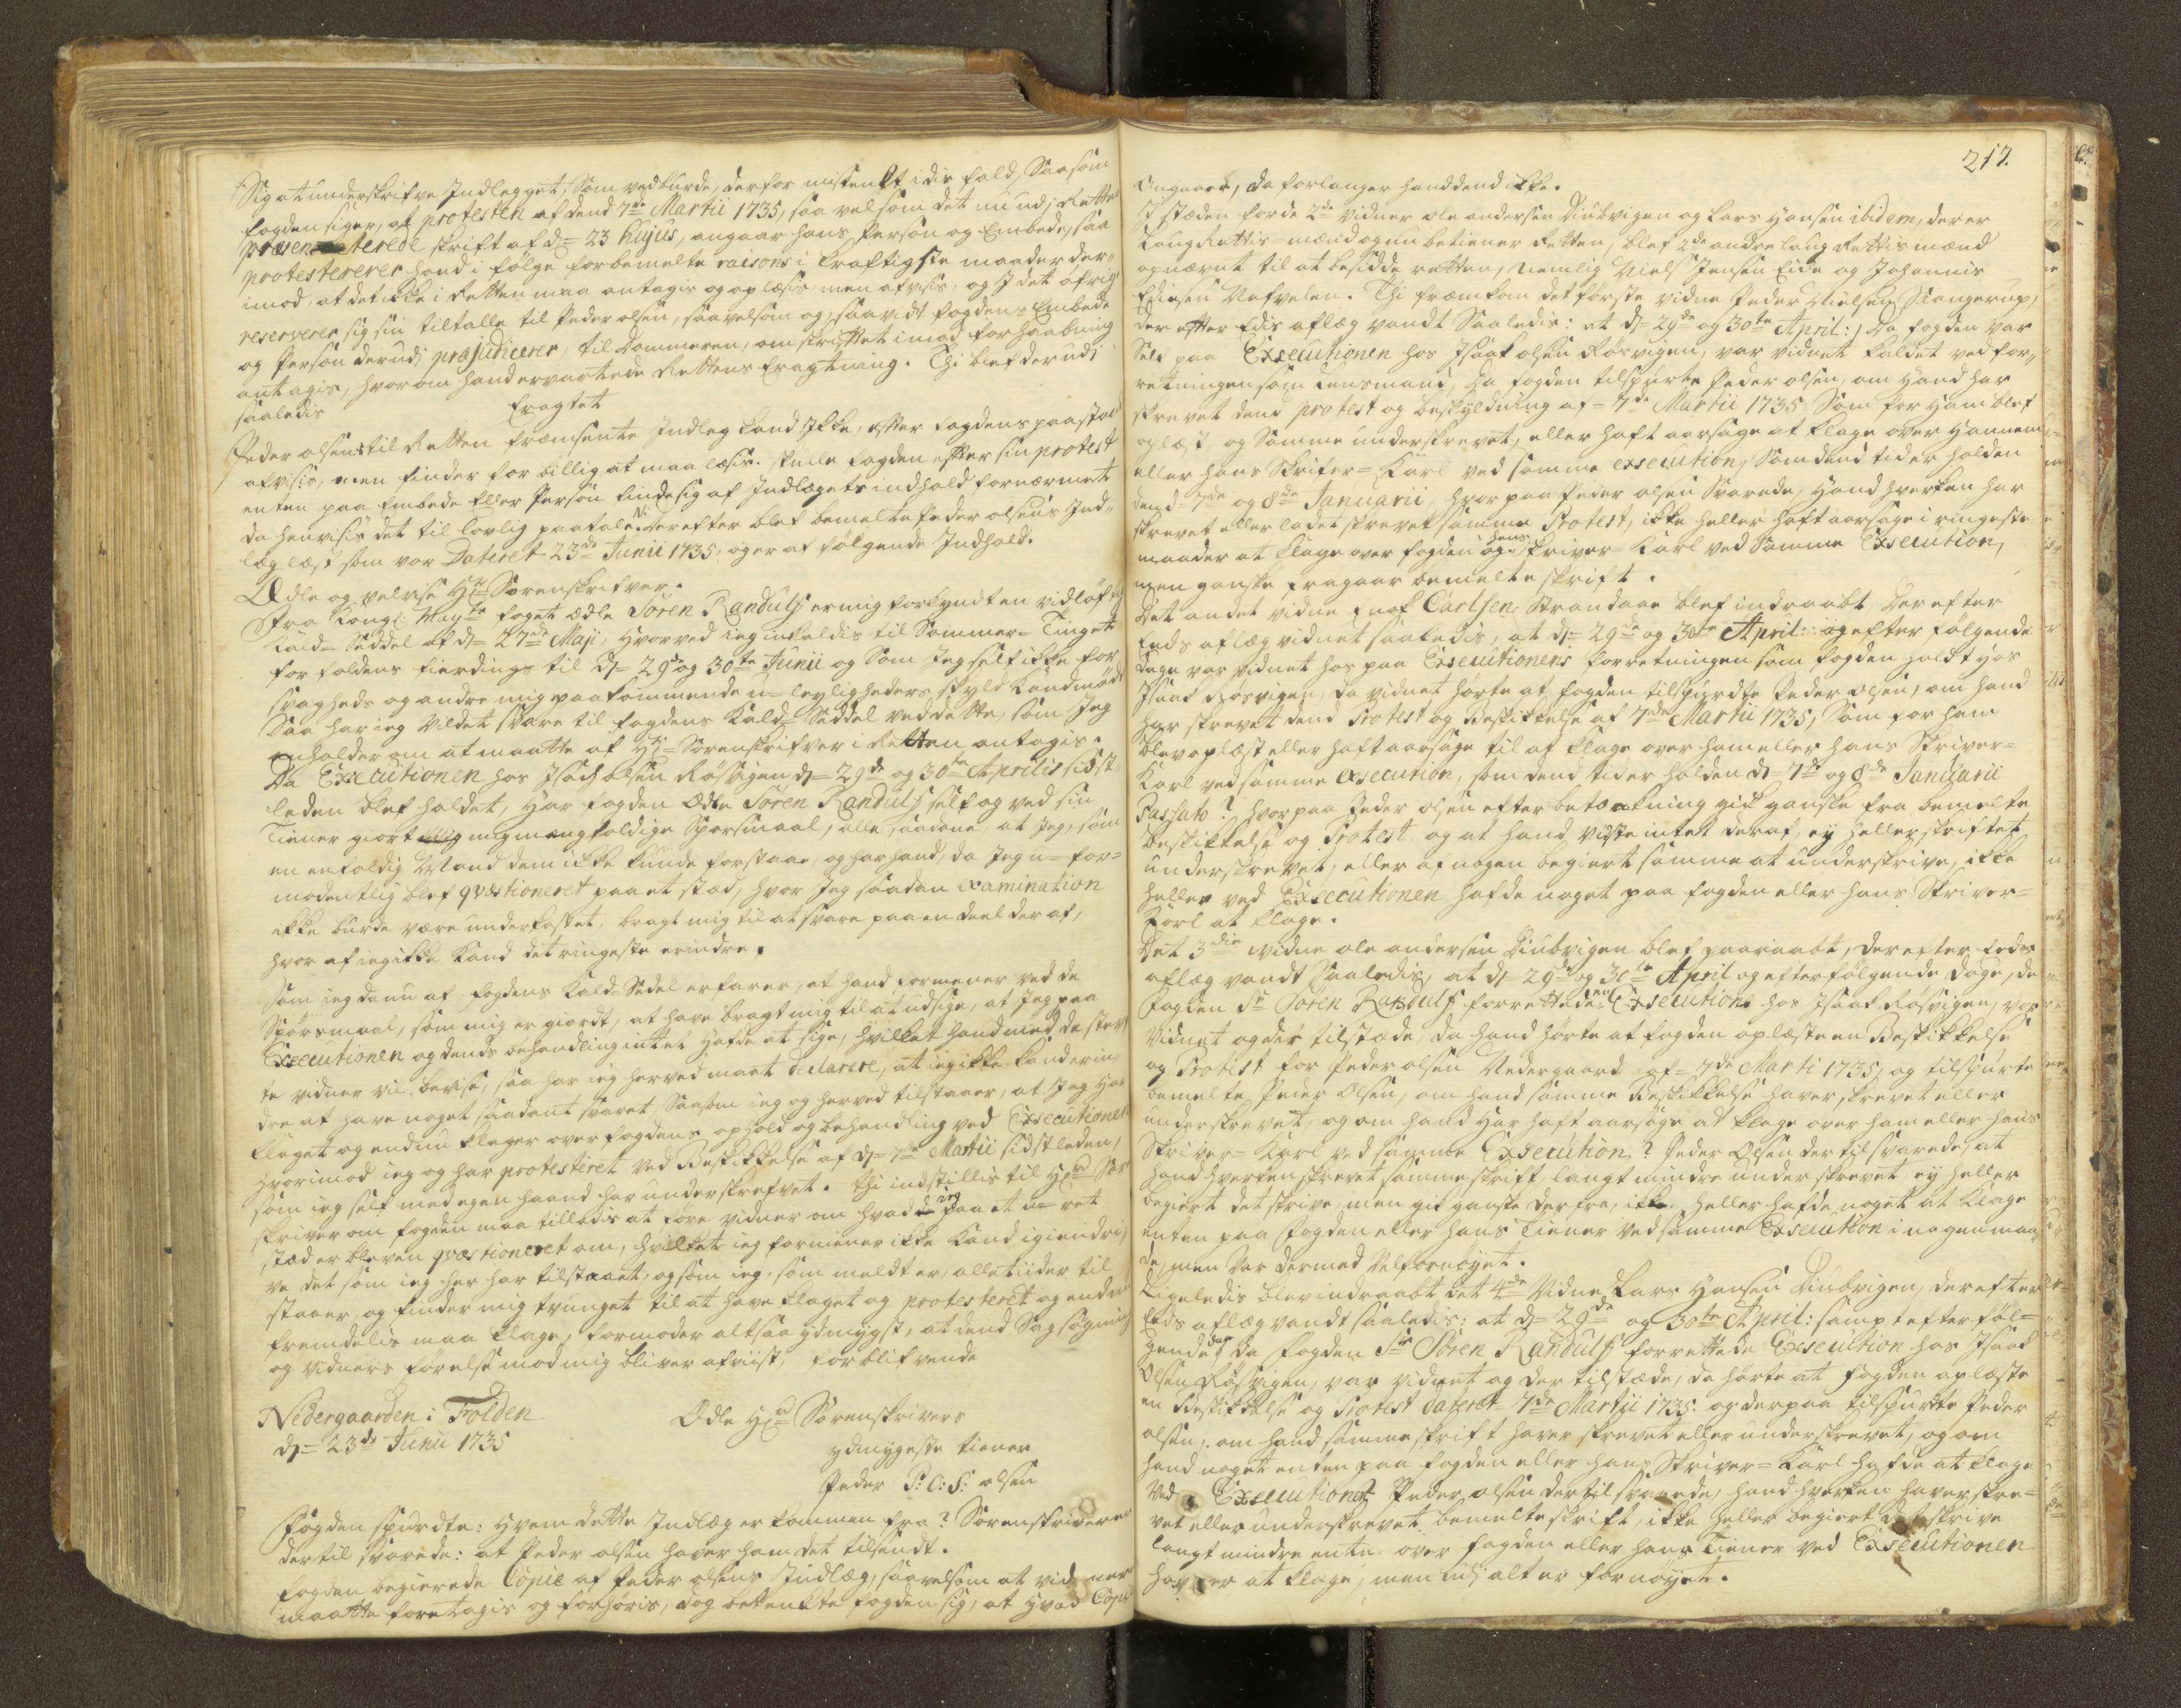 Sig at underskrifve Indlegget, Som vedburde, derfor mistenkt i dis fald, Saasom
fogden siger, at protesten af dend 7de Martii 1735, saa vel som det nu udi Retten
præsenterede skrift af d= 23 hujus, angaar hans Person og Embede, saa
protesterer hand i følge forbemelte raisons i kraftigste maader der„
imod, at det ikke i Retten maa antagis og oplæsis men afvisis, og I det øfrige
reserverer sig sin tiltalle til Peder olsen, saavelsom og, saavidt fogdens Embede
og Person derudj præjudicerer, til Dommeren, om skriftet imod forhaabning
antagis, hvorom hand ervartede Rettens Eragtning. Thi blef derudj
saaledis
Eragtet
Peder olsens til Retten fremsente Indleg kand Ikke, efter fogdens paastand
afvisis, men finder for billig at maa læsis. skulle fogden efter sin protest
enten paa Embede Eller Person finde sig af Indlægets indhold fornærmet
da henvisis det til lovlig paatale. Derefter blef bemelte Peder olsens Ind„
læg læst som var Dateret 23de Junii 1735, og er af følgende Indhold.
Ædle og velvise Hr Sorenskrifver.
Fra Kongl: Mayts foget ædle Sören Randulf er mig forkyndt en vidløftig
Kald= Seddel af d= 27de Maji, Hvorved ieg inkaldis til Sommer= Tinget
for foldens fierdings til d= 29de og 30te Junii og Som Jeg self ikke for
svagheds og andre mig paakommende u= leyligheders skyld kand møde
Saa har ieg villet svare til fogdens Kald= Seddel ved dette, som Jeg
anholder om at maatte af Hr= Sorenskrifver i Retten antagis.
Da Executionen hos Isach olsen Røssvigen d= 29de og 30te Aprilis sidst
leden blef holdet, har fogden Ædle Sören Randulf self og ved sin
Tiener giort mig mangfoldige Spørsmaal, alle saadane, at Jeg, som
en enfoldig Mand dem ikke kunde forstaae, og har hand, da Jeg u= for=
modentlig blef qvæstioneret paa et stæd, hvor Jeg saadan examination
ikke burde være underkastet, bragt mig til at svare paa en deel der af,
hvor af ieg ikke kand det ringeste erindre.
som ieg da nu af fogdens Kald= Sedel erfarer, at hand formener ved de
Spørsmaal, som mig er giordt, at have bragt mig til at udsige, at Jeg paa
Executionen og dends behandling intet hafde at sige, hvilket hand med de
te vidner vil bevise, saa har ieg herved maat declarere, at ieg ikke kand erin„
dre at have noget saadant svaret, Saasom ieg og herved tilstaaer, at Jeg har
klaget og endnu klager over fogdens ophold og behandling ved Executionen
hvorimod ieg og har protesteret ved Beskikkelse af d= 7de Martii sidstleden,
som ieg self med egen haand har underskrefvet. Thi indstillis til Hr Sor
skriver om fogden maa tilladis at føre vidner om hvad ieg paa et u= ret
stæd er bleven qvæstioneret om, hvilket ieg formener ikke kand igiendri,
ve, det som ieg her har tilstaaet, og som ieg, som meldt er, alletiider til
staaer, og finder mig tvunget til at have klaget og protesteret og endnu
fremdelis maa klage, formoder altsaa ydmygst, at dend Sagsøgning
og vidners førelse mod mig bliver afviist, forblifvende
Nedergaarden i Folden
d= 23de Junii 1735
Ædle Hr Sorenskrivers
ydmygeste tiener
Peder P: O: S: olsen
Fogden spurdte: Hvem dette Indlæg er kommen fra? Sorenskriveren
dertil svarede: at Peder olsen haver ham det tilsendt.
fogden begierede Copie af Peder olsens Indlæg, saavelsom at vidner
maatte foretagis og forhøris, dog betenkte fogden sig, at hvad Copi
217.
Angaar, da forlanger hand dend ikke.
I stæden for de 2de vidner ole andersen Diubvigen og Lars Hansen ibidem, der er
Laug Rettis= mænd og nu betiener Retten, blef 2de andre laug Rettis mænd
opnævnt til at besidde retten, nemlig Niels Jensen Eide og Johannis
Ellisen Nefvelen. Thi fremkom det første vidne Peder Nielsen Stangerup,
der efter Edis aflæg vandt Saaledis: at d= 29de og 30te April:, da fogden var
Self paa Executionen hos Isaak olsen Røsvigen, var vidnet kaldet ved for„
retningen som Lensmand, da fogden tilspurte Peder olsen, om Hand har
skrevet dend protest og beskyldning af= 7de Martii 1735, Som for Ham blef
oplæst, og Samme underskrevet, eller haft aarsage at klage over Hannem
eller hans Skrifver= Karl ved samme execution, Som dend tid er holden
dend 7de og 8de Januarii, hvorpaa Peder olsen Svarede, Hand hverken har
skrevet eller ladet skrevet samme Protest, ikke heller haft aarsage i ringeste
maader at klage over fogden og hans skriver= Karl ved Samme Execution,
men ganske fragaar bemelte skrift.
Det andet vidne Enok Carlsen Strandaae blef indraabt der efter
Eeds aflæg vidnet saaledis, at d= 29de og 30te April: og efter følgende
dage var vidnet hos paa Executionens forretningen som fogden holdt hos
Isaak Røsvigen, da vidnet hørte at fogden tilspurdte Peder olsen, om hand
har skrevet dend Protest og Beskikkelse af 7de Martii 1735, Som for ham
blev oplæst eller haft aarsage til at klage over ham eller hans Skriver=
Karl ved samme execution, som dend tid er holden d= 7de og 8de Januarii
Passato? hvorpaa Peder olsen efter betænkning gik ganske fra bemelte
beskikkelse og Protest og at hand viste intet deraf, ey heller skriftet
underskrevet, eller af nogen begiert samme at underskrive, ikke
heller ved Executionen hafde noget paa fogden eller hans Skriver=
Karl at klage.
Det 3die vidne ole andersen Diubvigen blef paaraabt, der efter Eeds
aflæg vandt Saaledis, at d= 29de og 30te April og efterfølgende dage, da
fogden Sr Sören Randulf forrettede en Execution hos Isaak Røsvigen, var
vidnet og der tilstæde, da hand hørte at fogden oplæste en Beskikkelse
og Protest for Peder olsen Nedergaard af= 7de Marti 1735, og tilspurte
bemelte Peder Olsen, om hand samme Beskikkelse haver skrevet eller
underskrevet, og om hand har haft aarsage at klage over ham eller hans
Skriver= Karl ved samme Execution? Peder Olsen der til svarede, at
hand hverken skrevet samme skrift, langt mindre underskrevet, ey heller
begiert det skrive, men gik ganske der fra, ikke heller hafde noget at klage
enten paa fogden eller hans Tiener ved samme Execution i nogen maa
de, men var dermed velfornøyet.
Ligeledis blev indraabt det 4de Vidne Lars Hansen Diubvigen, der efter
Eeds aflæg vandt saaledis: at d= 29de og 30te April: samt efterføl=
gende dage da fogden Sr Sören Randulf forrettede Execution hos Isaak
Olsen Røsvigen, var vidnet og der tilstæde, da hørte at fogden oplæste
en Beskikkelse og Protest dateret= 7de Martii 1735 og derpaa tilspurte Peder
olsen, om hand samme skrift haver skrevet eller underskrevet, og om
hand noget enten paa fogden eller hans Skriver= Karl hafde at klage
ved Executionen, Peder olsen dertil svarede, hand hverken haver skre=
vet eller underskrevet bemelte skrift, ikke heller begiert det skrive
langt mindre enten over fogden eller hans Tiener ved Executionen
haver at klage, men udj alt er fornøyet.